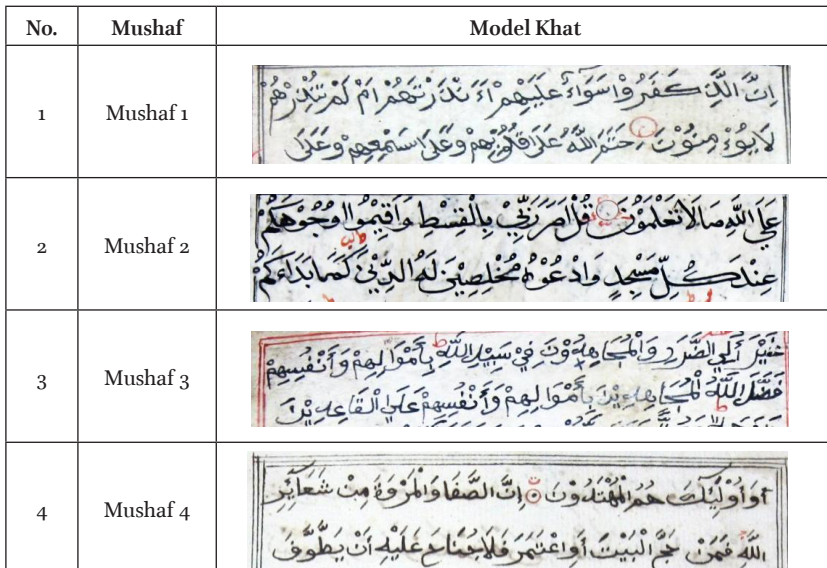 No. Mushaf Model Khat
1 Mushaf 1
اِنَّ الَّذِ كَفَرُوْا سَوَاءٌ عَلَيْهِمْ ءَاَنْذَرْتَهُمْ اَمْ لَمْ تُنْذِرْهُمْ
لَا يُوءْ مِنُوْنَ خَتَمَ اللَّهُ عَلَى قُلُوْبِهِمْ وَعَلَى اسَمْعِهِمْ وَعَلَى
2 Mushaf 2
عَلَي اللَّهِ مَالَا تَعْلَمُوْنَ قُلْ اَمَرَ رَبِّيْ بِالْقِسْطِ وَاَقِيْمُوا اوُجُوْهَكُمْ
عِنْدَ كُلِّ مَسْجِدٍ وَادْعُوْهُ مُخْلِصِيْنَ لَهُ الدِّيْنَ كَمَا بَدَاءَكُمْ
3 Mushaf 3
غَيْرَ أُلِي الضَّرَرِ وَالْمُجَاهِدُوْنَ فِيْ سَبِيْلِ اللَّهِ بِأَمْوَالِهِمْ وَأَنْفُسِهِمْ
فَضَّلَ اللَّهُ الْمُجَاهِدِيْنَ بِأَمْوَالِهِمْ وَأَنْفُسِهِمْ عَلَي الْقَاعِدِيْنَ
4 Mushaf 4
أوَ أُوْلَٓئِكَ هُمُ الْمُهْتَدُوْنَ إِنَّ الصَّفَا وَالْمَرْوَةَ مِنْ شَعَآئِرِ
اللَّهِ فَمَنْ حَجَّ الْبَيْتَ أَوِاعْتَمَرَ فَلَاجُنَاحَ عَلَيْهِ أَنْ يَطَّوَّفَ